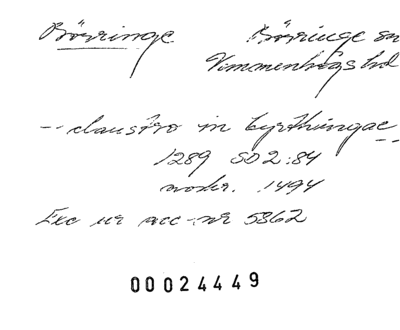 Börringe Börringe sn
Vemmenhögs hd
-- claustro in byrthingae --
1289 SD 2:84
avskr. 1494
Exc ur acc-nr 5862
00024449